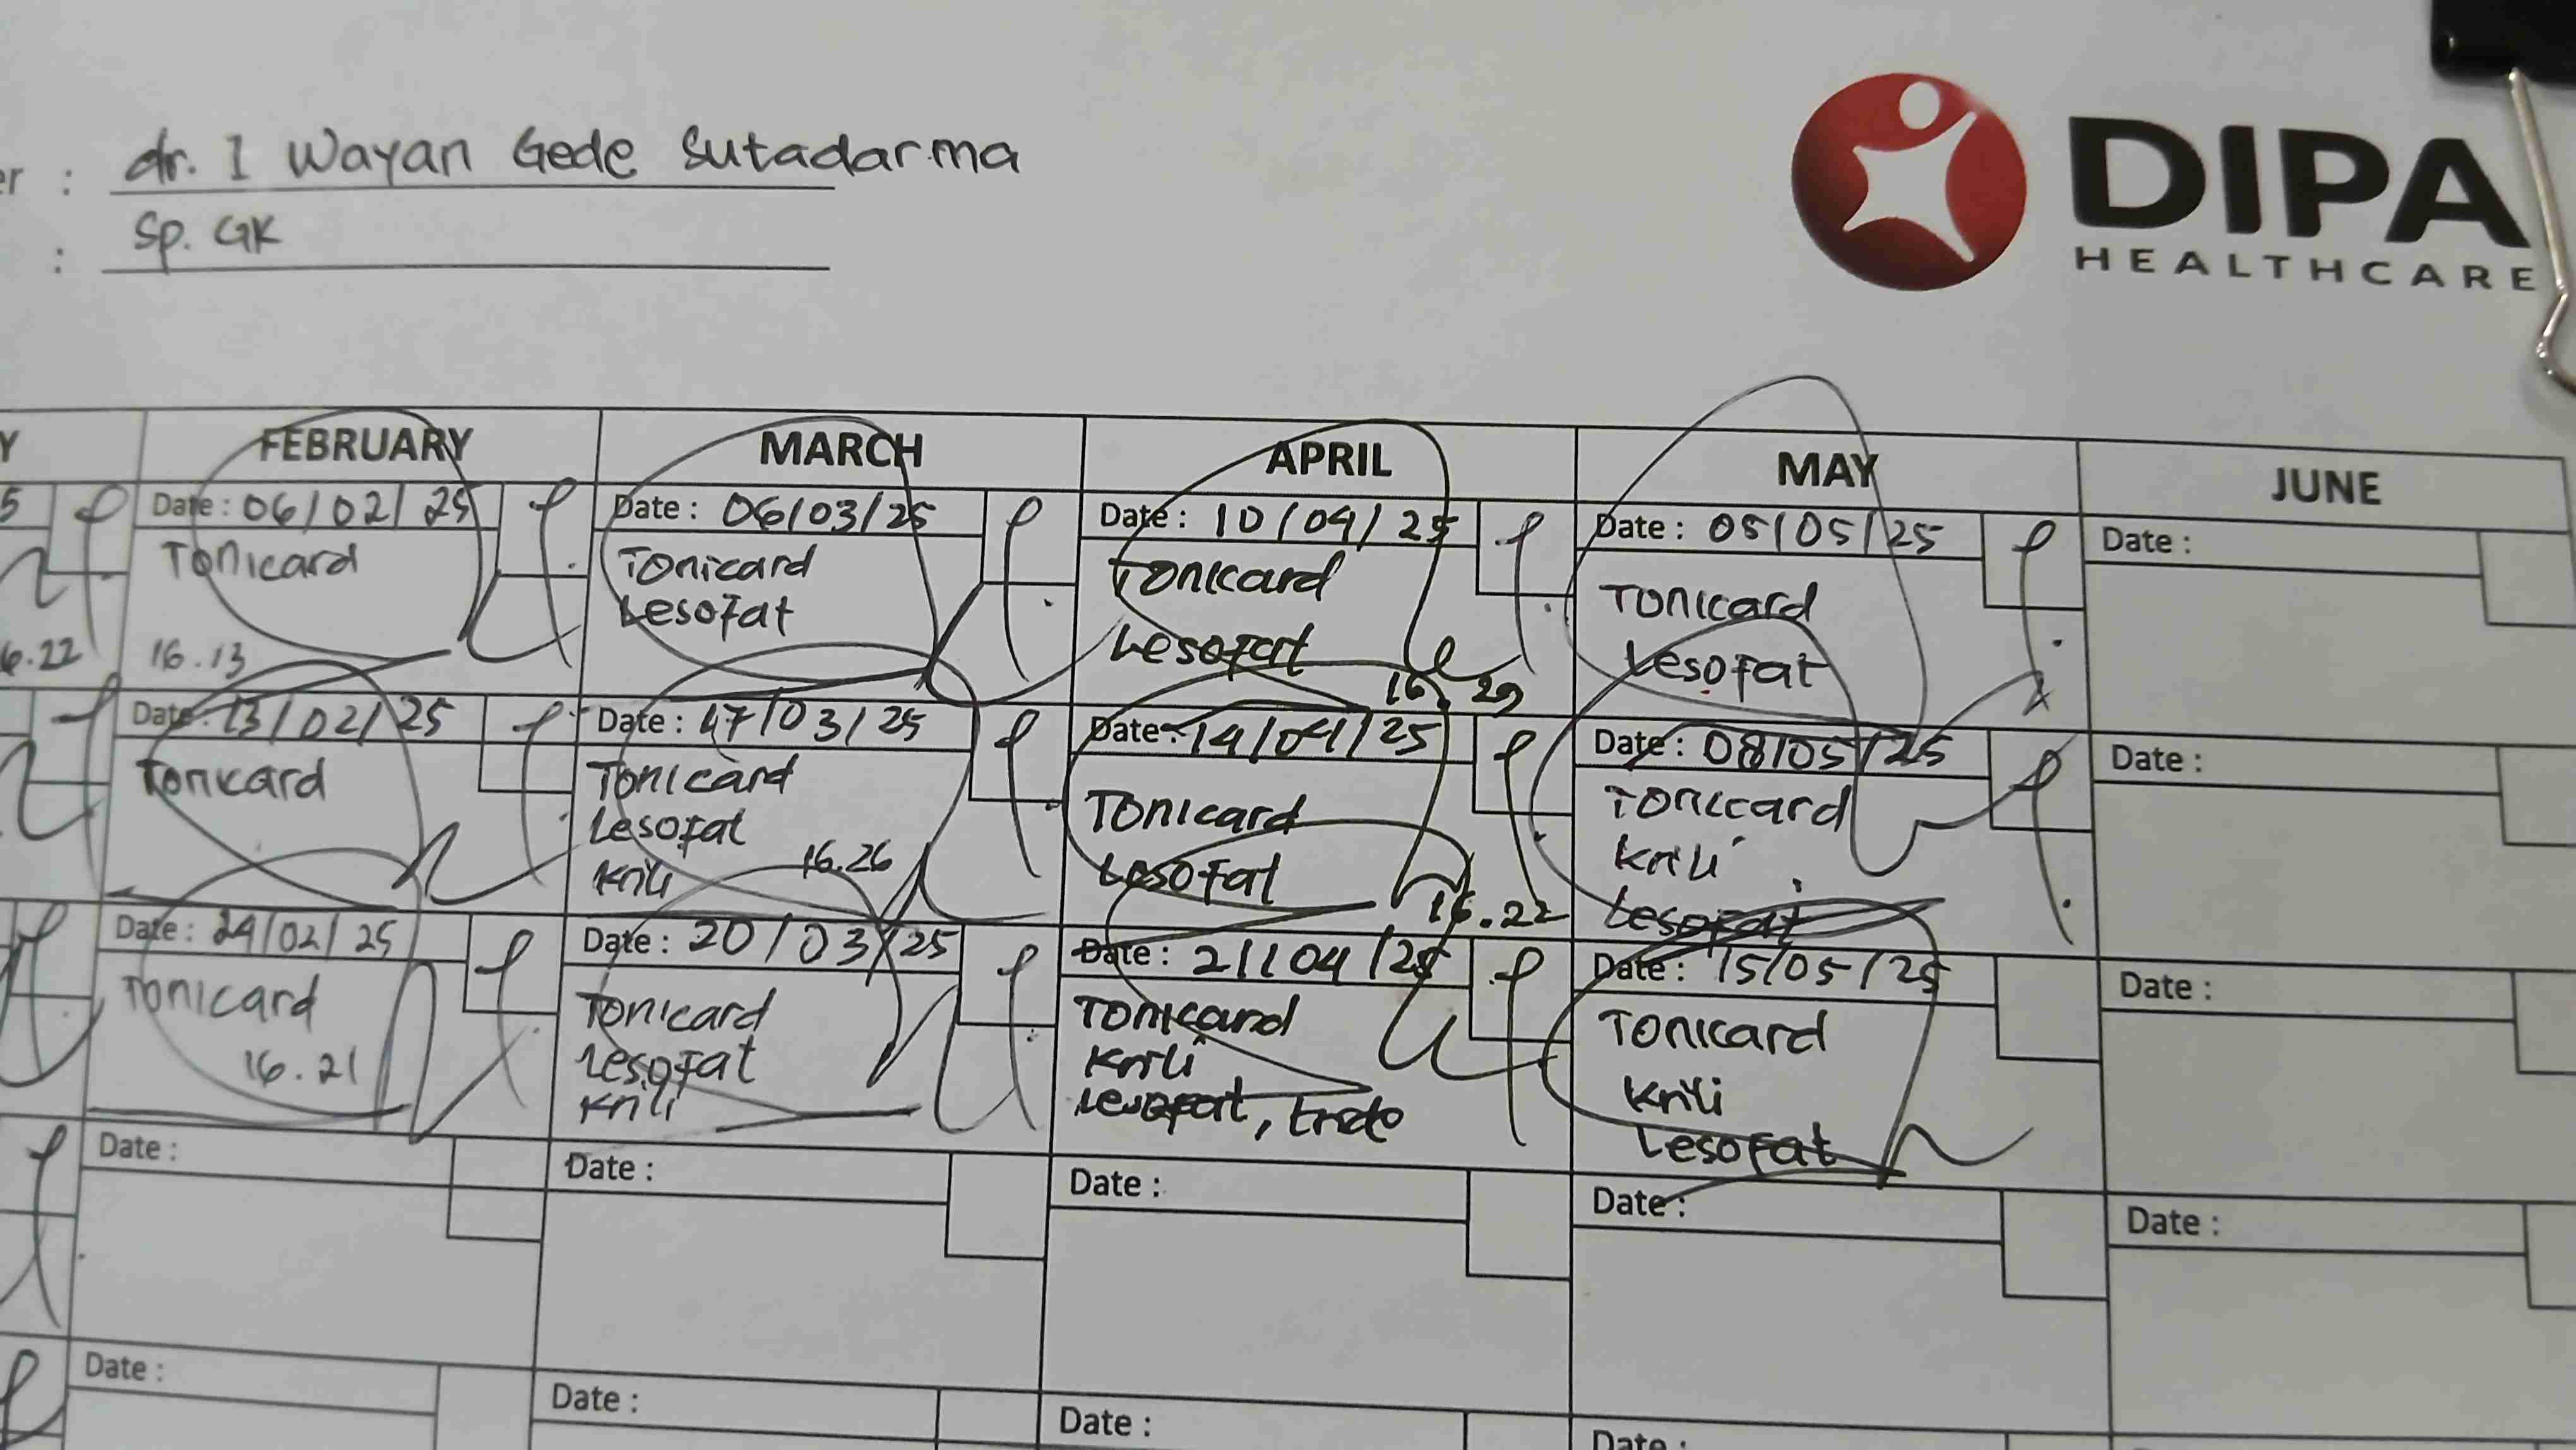 er : dr. I Wayan Gede Sutadarma
: Sp. GK
DIPA
HEALTHCARE
Y FEBRUARY MARCH APRIL MAY JUNE
5 Date : 06/02/25 Date : 06/03/25 Date : 10/04/25 Date : 05/05/25 Date :
Tonicard Tonicard Tonicard Tonicard
Lesofat Lesofat Lesofat
6.22 16.13 16.29
Date : 13/02/25 Date : 17/03/25 Date : 14/04/25 Date : 08/05/25 Date :
Tonicard Tonicard Tonicard Tonicard
Lesofat Lesofat Krili
Krili 16.26 16.22 Lesofat
Date : 24/02/25 Date : 20/03/25 Date : 21/04/25 Date : 15/05/25 Date :
Tonicard Tonicard Tonicard Tonicard
16.21 Lesofat Krili Krili
Krili Lesofat, Lesofat
Date : Date : Date : Date : Date :
Date : Date : Date : Date :